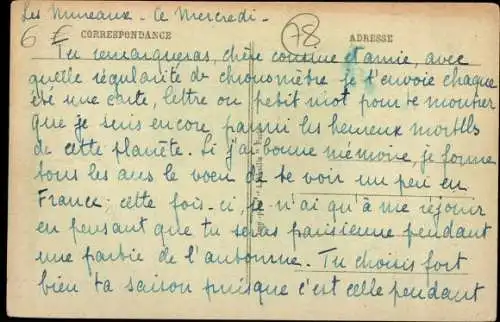 Les Mureaux - Ce Mercredi -
6 € CORRESPONDANCE 78 ADRESSE
Tu remarqueras, chère cousine et amie, avec
quelle régularité de chronomètre je t'envoie chaque
été une carte, lettre ou petit mot pour te montrer
que je suis encore parmi les heureux mortels
de cette planète. Si j'ai bonne mémoire, je forme
tous les ans le voeu de te voir un peu en
France ; cette fois-ci, je n'ai qu'à me réjouir
en pensant que tu seras parisienne pendant
une partie de l'automne. - Tu choisis fort
bien ta saison puisque c'est celle pendant